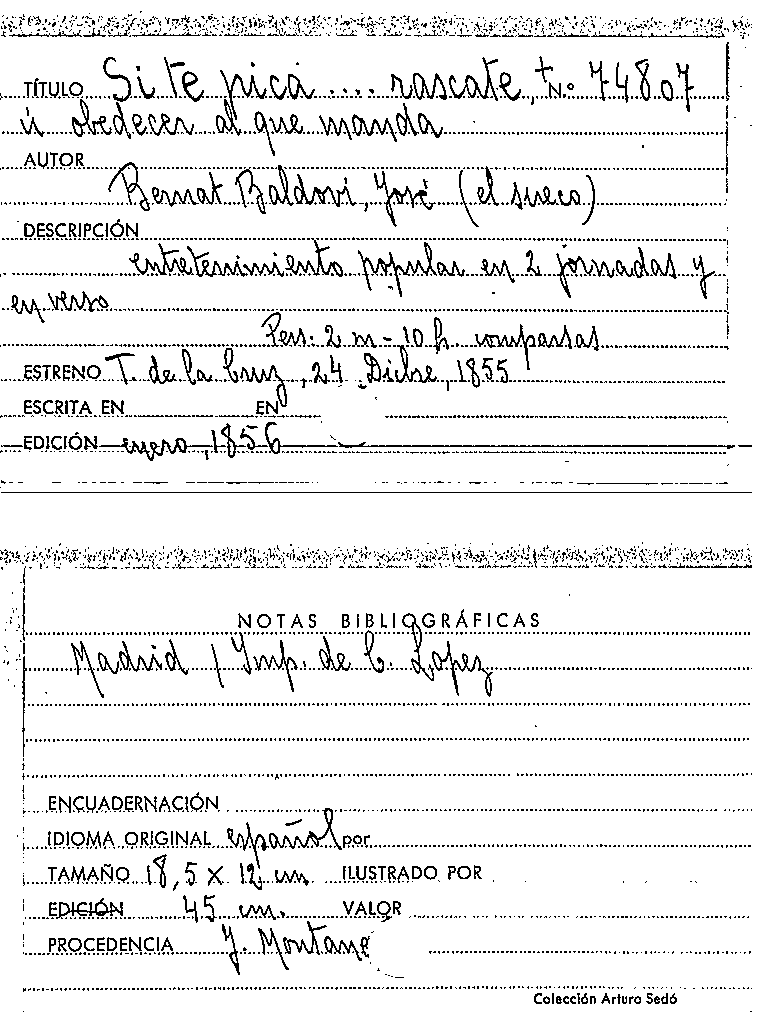 TÍTULO Si te pica .... rascate, + N.º 74807
ú obedecer al que manda
AUTOR
Bernat Baldoví, José (el sueco)
DESCRIPCIÓN
entretenimiento popular en 2 jornadas y
en verso
Pers. 2 m - 10 h. comparsas
ESTRENO T. de la Cruz, 24 Dicbre, 1855
ESCRITA EN EN
EDICIÓN enero, 1856
NOTAS BIBLIOGRÁFICAS
Madrid / Imp. de C. Lopez
ENCUADERNACIÓN
IDIOMA ORIGINAL español por
TAMAÑO 18,5 x 12 cm. ILUSTRADO POR
EDICIÓN 45 cm. VALOR
PROCEDENCIA J. Montané
Colección Arturo Sedó